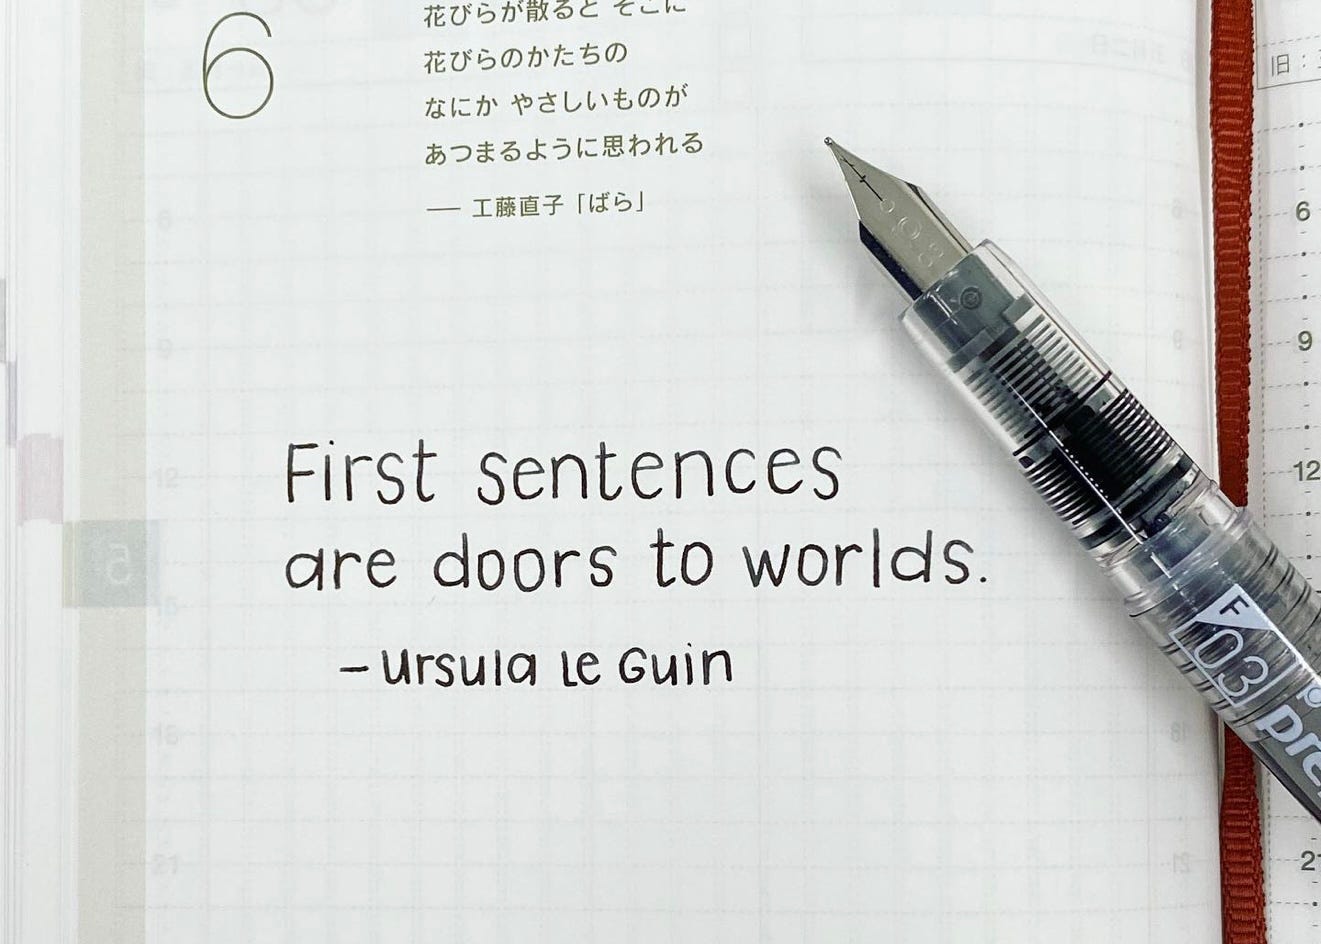 6
花びらが散ると そこに
花びらのかたちの
なにか やさしいものが
あつまるように思われる
── 工藤直子「ばら」
First sentences
are doors to worlds.
- Ursula Le Guin
F
03
Pre
旧:
6
9
12